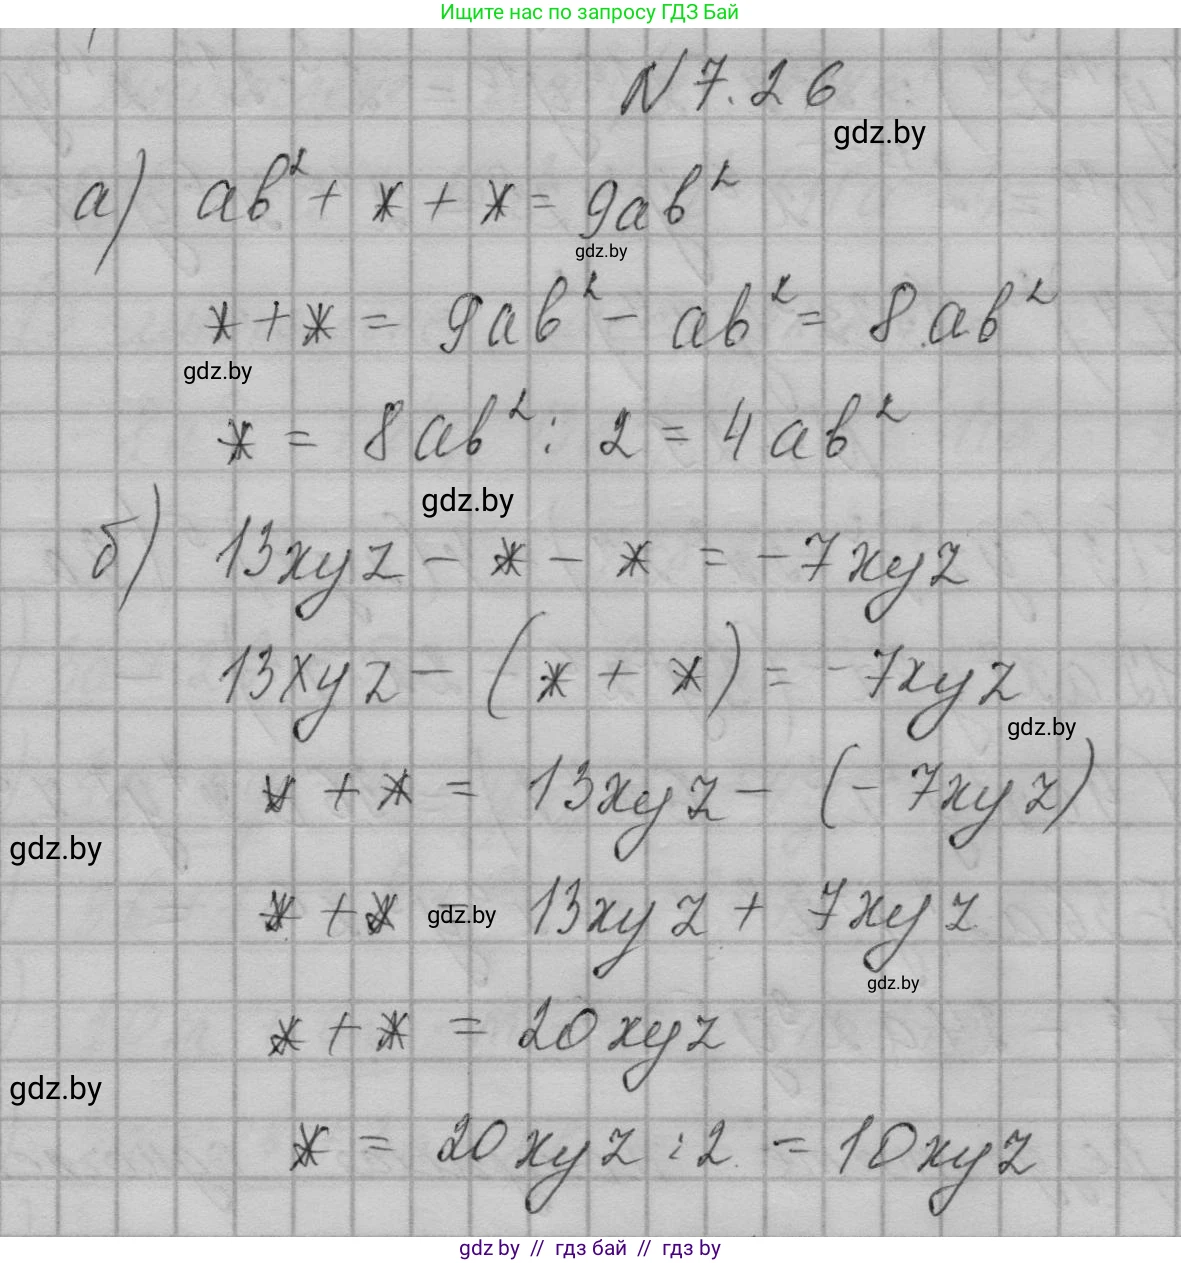 Ищите нас по запросу ГДЗ Бай
N 7.26
gdz.by
а) ab² + * + * = 9ab²
gdz.by
* + * = 9ab² - ab² = 8ab²
gdz.by
* = 8ab² : 2 = 4ab²
gdz.by
б) 13xyz - * - * = -7xyz
13xyz - (* + *) = -7xyz
gdz.by
* + * = 13xyz - (-7xyz)
gdz.by
* + * = 13xyz + 7xyz
gdz.by
gdz.by
* + * = 20xyz
gdz.by
* = 20xyz : 2 = 10xyz
gdz by // гдз бай // гдз by